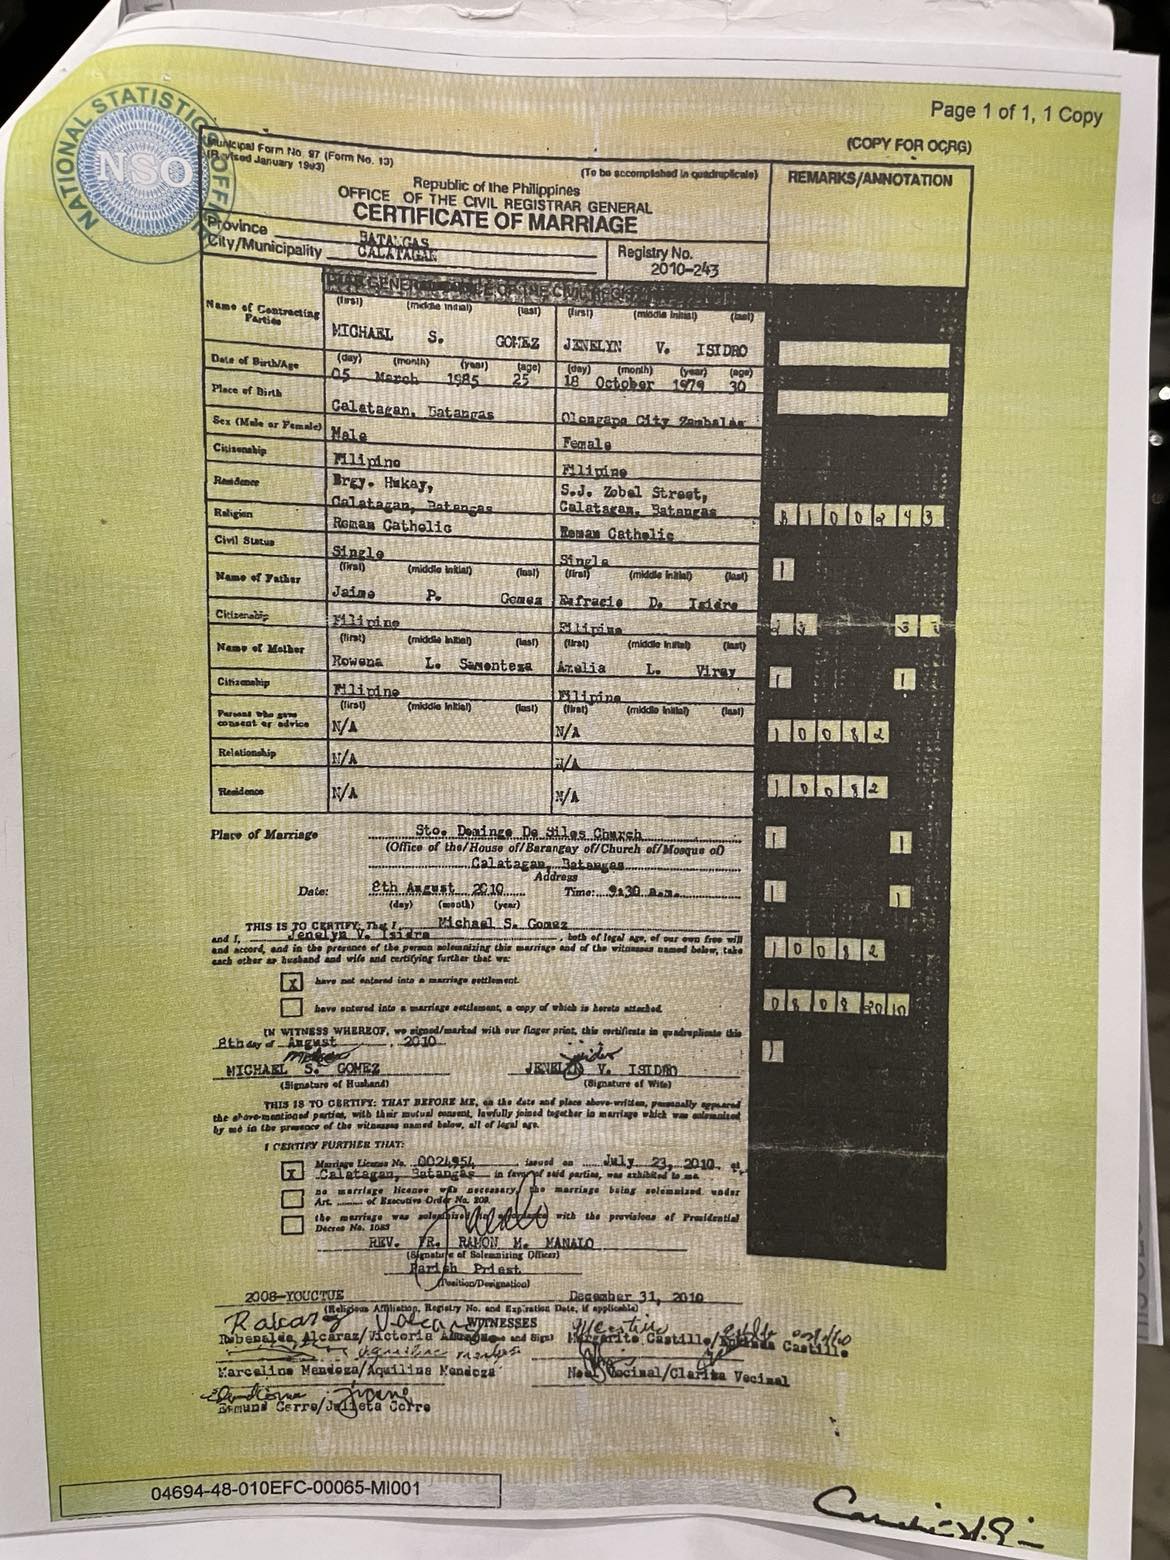 Page 1 of 1, 1 Copy
NATIONAL STATISTICS OFFICE
NSO
(COPY FOR OCRG)
Municipal Form No. 97 (Form No. 13)
(Revised January 1993)
(To be accomplished in quadruplicate)
REMARKS/ANNOTATION
Republic of the Philippines
OFFICE OF THE CIVIL REGISTRAR GENERAL
CERTIFICATE OF MARRIAGE
Province BATANGAS
City/Municipality CALATAGAN
Registry No.
2010-243
Name of Contracting Parties
(first) (middle initial) (last) (first) (middle initial) (last)
MICHAEL S. GOMEZ JENELYN V. ISIDRO
Date of Birth/Age
(day) (month) (year) (age) (day) (month) (year) (age)
05 March 1985 25 18 October 1979 30
Place of Birth
Calatagan, Batangas Olongapo City Zambales
Sex (Male or Female) Male Female
Citizenship Filipino Filipino
Residence Brgy. Hukay, S.J. Zobel Street,
Calatagan, Batangas Calatagan, Batangas
Religion Roman Catholic Roman Catholic
Civil Status Single Single
(first) (middle initial) (last) (first) (middle initial) (last)
Name of Father
Jaime P. Gomez D. Isidro
Citizenship Filipino Filipino
(first) (middle initial) (last) (first) (middle initial) (last)
Name of Mother
Rowena L. Samonteza L. Viray
Citizenship Filipino Filipino
(first) (middle initial) (last) (first) (middle initial) (last)
Persons who gave consent or advice N/A N/A
Relationship N/A N/A
Residence N/A N/A
100243
1
1 1
10082
10082
1 1
1 1
10082
08082010
1
Place of Marriage Sto. Domingo De Silos Church
(Office of the/House of/Barangay of/Church of/Mosque of)
Calatagan, Batangas
Address
Date: 8th August 2010 Time: 9:30 a.m.
(day) (month) (year)
THIS IS TO CERTIFY: That I, Michael S. Gomez
and I, Jenelyn V. Isidro, both of legal age, of our own free will
and accord, and in the presence of the person solemnizing this marriage and of the witnesses named below, take
each other as husband and wife and certifying further that we:
x have not entered into a marriage settlement.
have entered into a marriage settlement, a copy of which is hereto attached.
IN WITNESS WHEREOF, we signed/marked with our finger print, this certificate in quadruplicate this
8th day of August, 2010
MICHAEL S. GOMEZ JENELYN V. ISIDRO
(Signature of Husband) (Signature of Wife)
THIS IS TO CERTIFY: THAT BEFORE ME, on the date and place above-written, personally appeared
the above-mentioned parties, with their mutual consent, lawfully joined together in marriage which was solemnized
by me in the presence of the witnesses named below, all of legal age.
I CERTIFY FURTHER THAT:
x Marriage License No. 0024954 issued on July 23, 2010 at
Calatagan, Batangas in favor of said parties, was exhibited to me.
no marriage license was necessary, the marriage being solemnized under
Art. of Executive Order No. 209.
the marriage was solemnized in accordance with the provisions of Presidential
Decree No. 1083
REV. FR. RAMON M. MANALO
(Signature of Solemnizing Officer)
Parish Priest
(Position/Designation)
2008-YOUCTUE December 31, 2010
(Religious Affiliation, Registry No. and Expiration Date, if applicable)
WITNESSES
Alcaraz/Victoria and Sign) Margarito Castillo/ Castillo
Marcelino Mendoza/Aquilina Mendoza Noel Vecinal/Clarita Vecinal
Edmund Cerro/Julieta Corro
04694-48-010EFC-00065-MI001